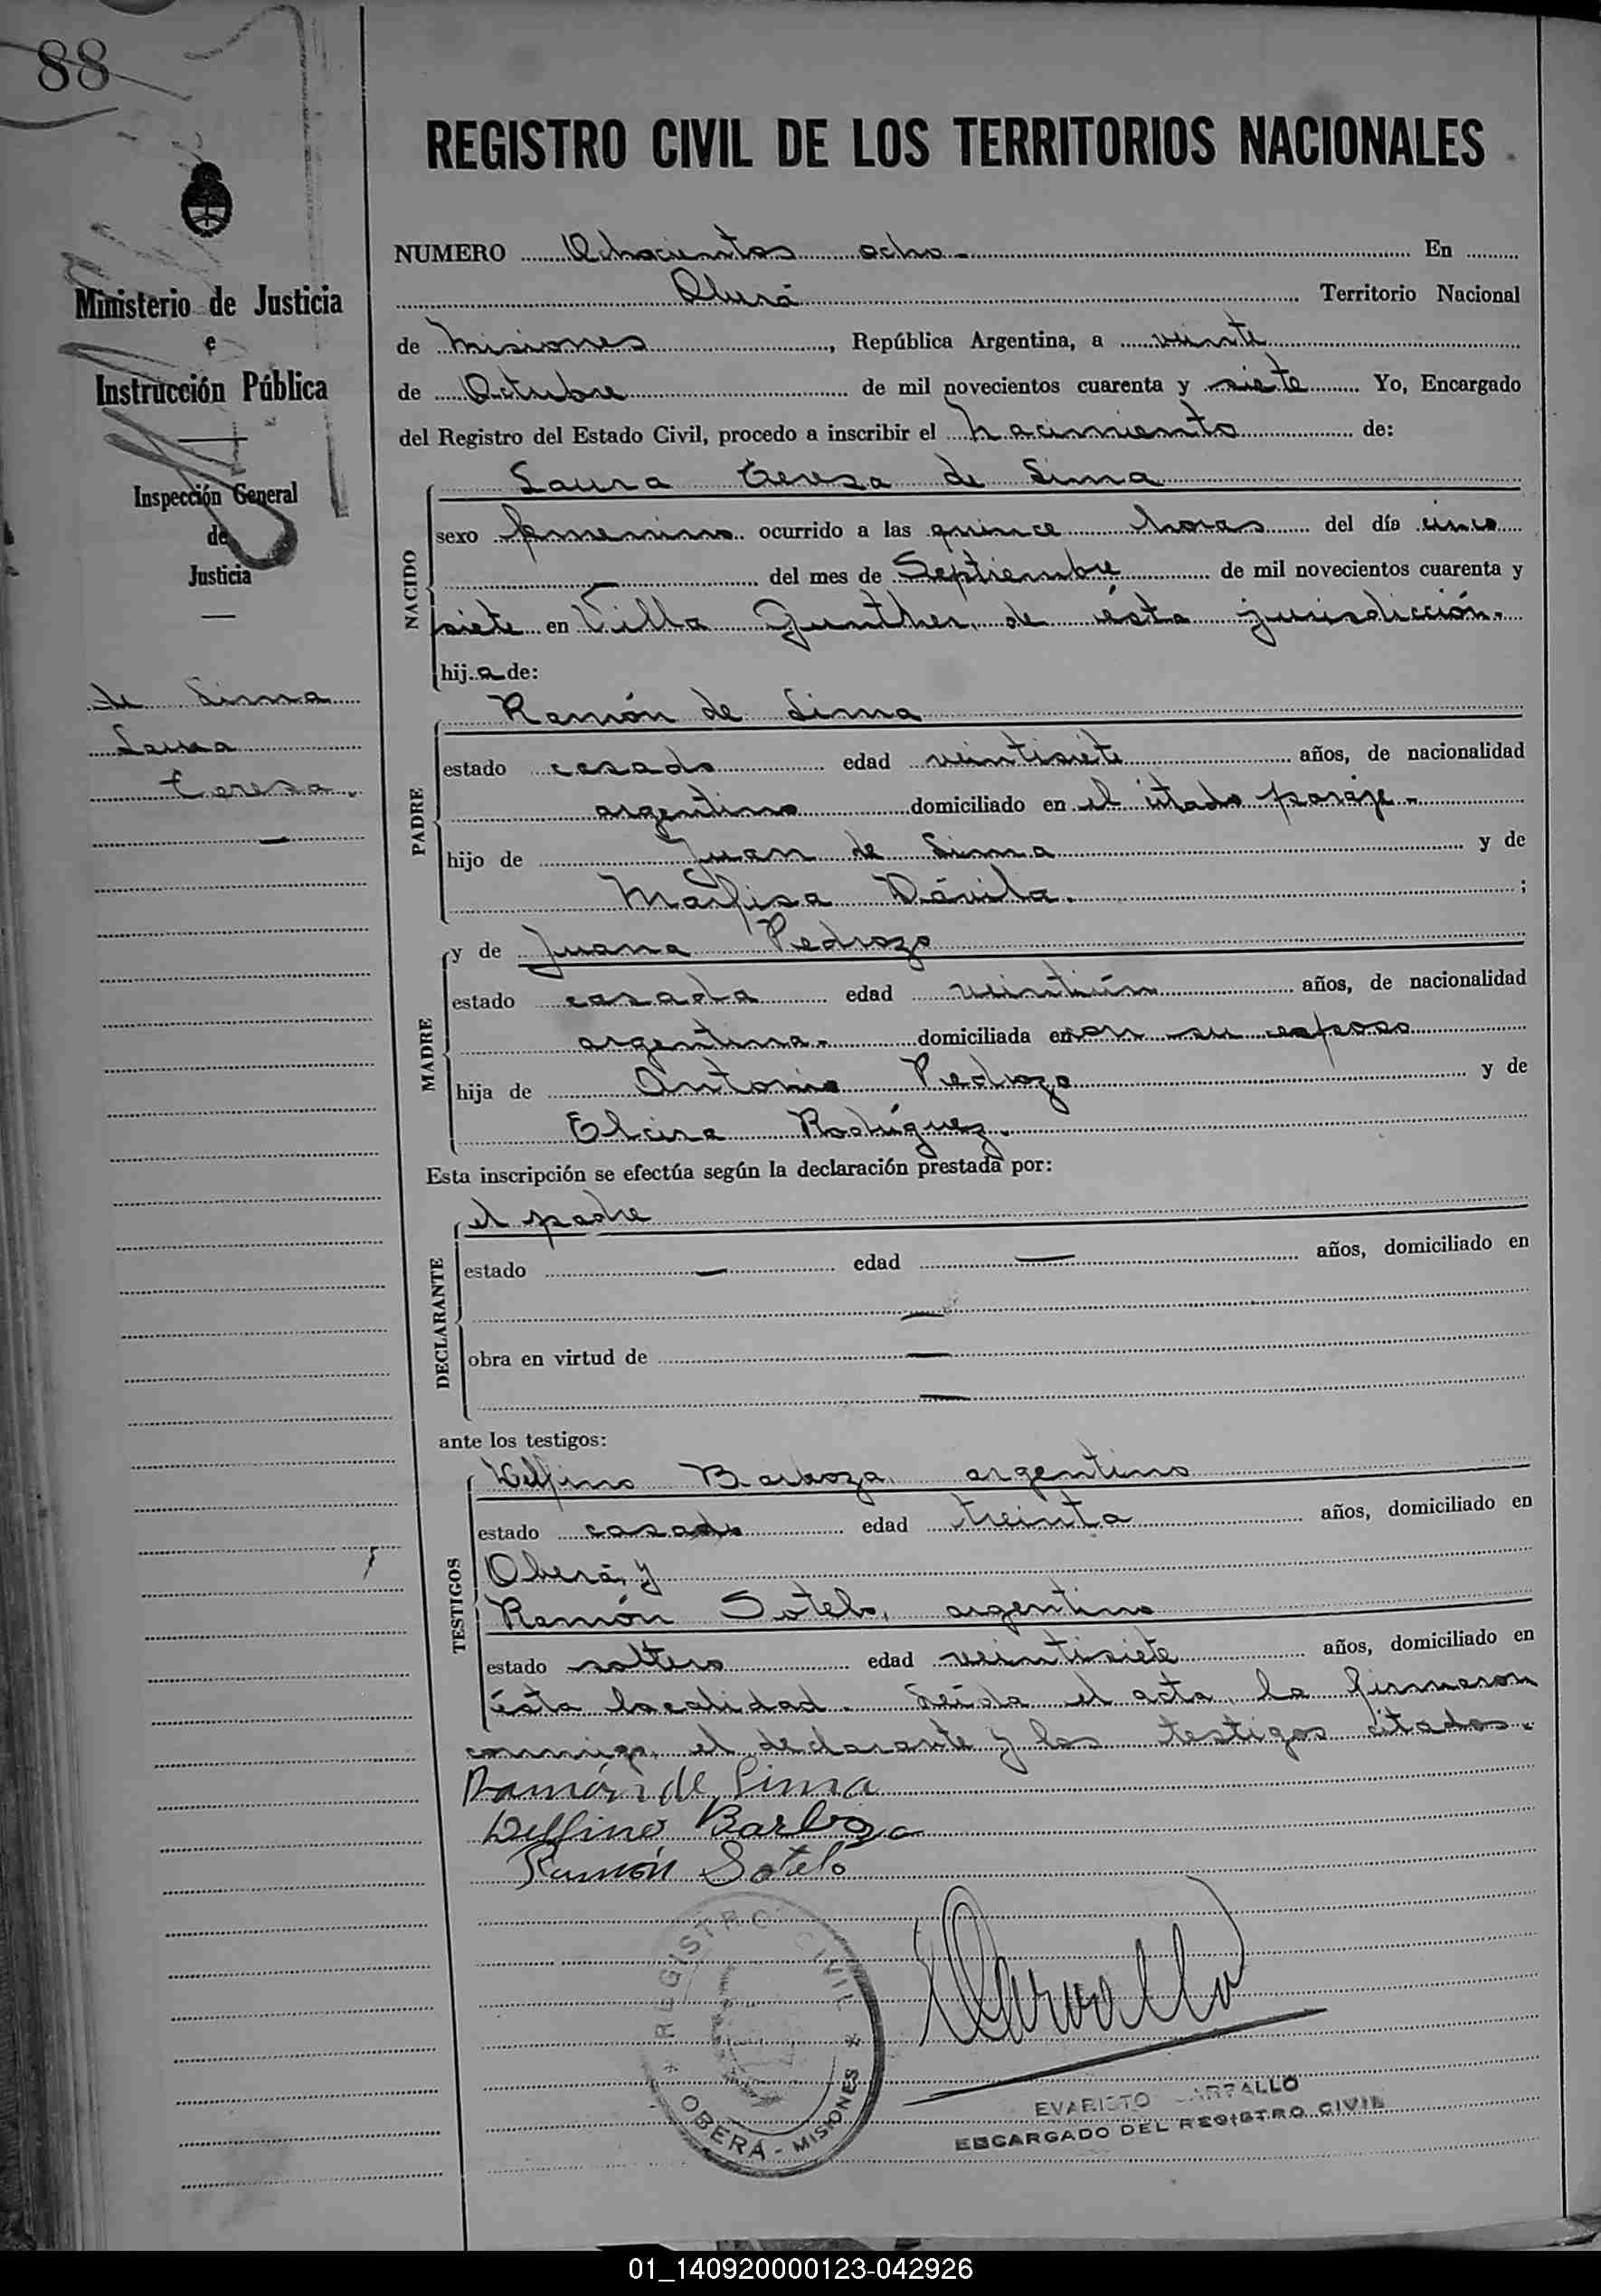 88
REGISTRO CIVIL DE LOS TERRITORIOS NACIONALES
Ministerio de Justicia
e
Instrucción Pública
Inspección General
de
Justicia
de Lima
Laura
Teresa.
NUMERO Ochocientos ocho.- En
Oberá Territorio Nacional
de Misiones, República Argentina, a veinte
de Octubre de mil novecientos cuarenta y siete Yo, Encargado
del Registro del Estado Civil, procedo a inscribir el nacimiento de:
NACIDO
Laura Teresa de Lima
sexo femenino ocurrido a las quince horas del día cinco
— del mes de Septiembre de mil novecientos cuarenta y
siete en Villa Gunther, de ésta jurisdicción.
hija de:
PADRE
Ramón de Lima
estado casado edad veintisiete años, de nacionalidad
argentino domiciliado en el citado paraje.-
hijo de Juan de Lima y de
Marfisa Dávila. ;
MADRE
y de Juana Pedrozo
estado casada edad veintiún años, de nacionalidad
argentina.- domiciliada en con su esposo
hija de Antonio Pedrozo y de
Elcira Rodríguez.
Esta inscripción se efectúa según la declaración prestada por:
DECLARANTE
el padre
estado — edad — años, domiciliado en
—
obra en virtud de —
—
ante los testigos:
TESTIGOS
Delfino Barboza, argentino
estado casado edad treinta años, domiciliado en
Oberá, y
Ramón Sotelo, argentino
estado soltero edad veintisiete años, domiciliado en
ésta localidad. Leída el acta, la firmaron
conmigo, el declarante y los testigos citados.-
Ramón de Lima
Delfino Barboza
Ramón Sotelo
REGISTRO CIVIL
* OBERÁ - MISIONES *
EVARISTO CARVALLO
ENCARGADO DEL REGISTRO CIVIL
01_140920000123-042926